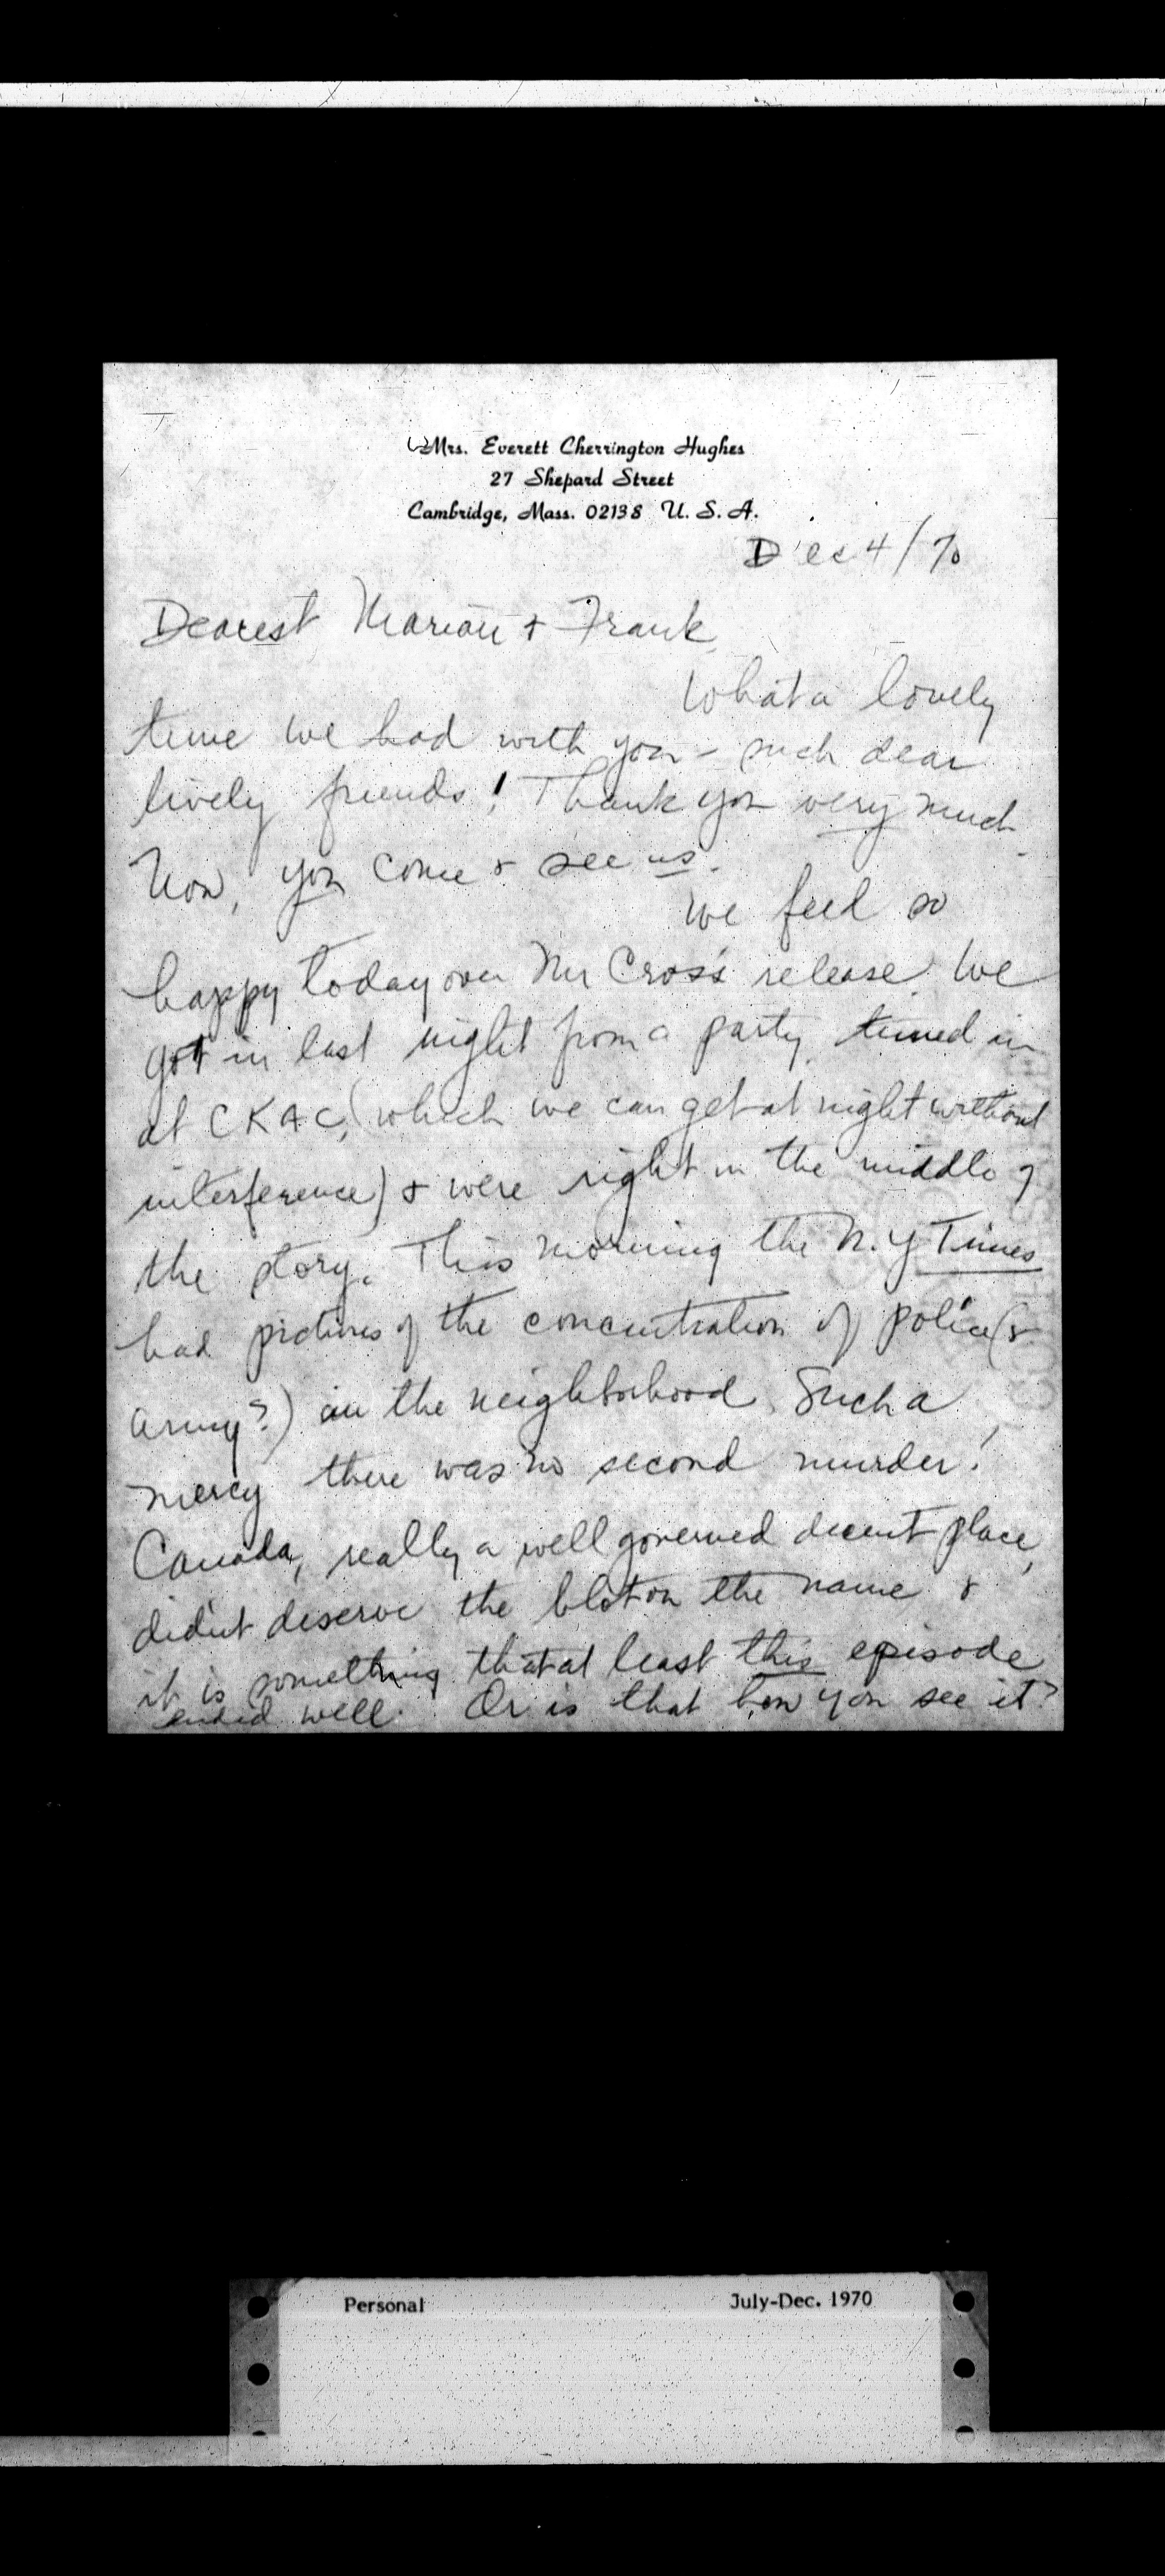 Mrs. Everett Cherrington Hughes
27 Shepard Street
Cambridge, Mass. 02138 U. S. A.
Dec 4/70
Dearest Marian + Frank,
What a lovely
time we had with you - such dear
lively friends! Thank you very much.
Now, you come & see us.
We feel so
happy today over Mr Cross's release. We
got in last night from a party, tuned in
at CKAC, (which we can get at night without
interference) & were right in the middle of
the story. This morning the N.Y Times
had pictures of the concentration of police (&
army?) in the neighborhood. Such a
mercy there was no second murder!
Canada, really a well governed decent place,
didn't deserve the blot on the name &
it is something that at least this episode
ended well. Or is that how you see it?
Personal July-Dec. 1970